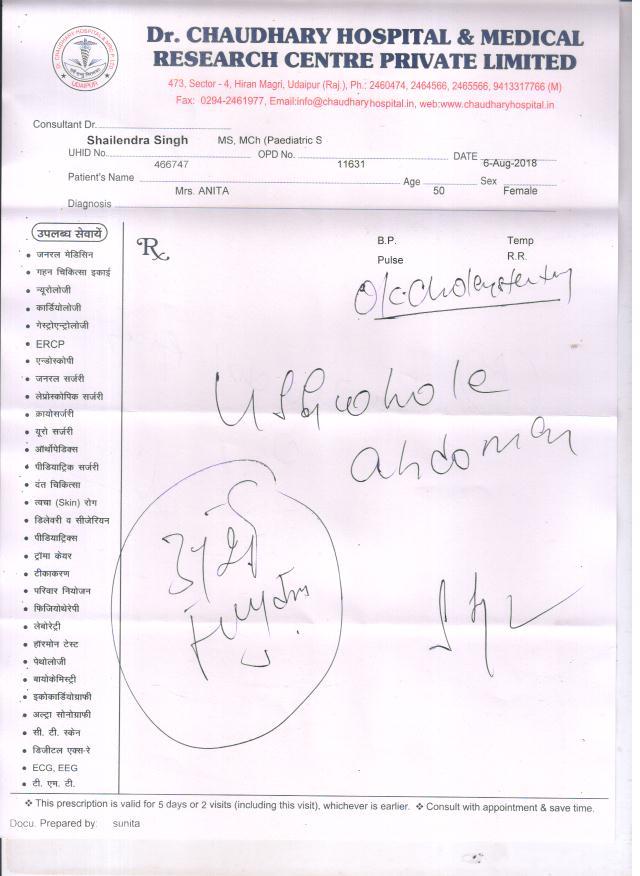 Dr. CHAUDHARY HOSPITAL & MEDICAL
RESEARCH CENTRE PRIVATE LIMITED
UDAIPUR
473, Sector - 4, Hiran Magri, Udaipur (Raj.), Ph.: 2460474, 2464566, 2465566, 9413317766 (M)
Fax: 0294-2461977, Email:info@chaudharyhospital.in, web:www.chaudharyhospital.in
Consultant Dr.
Shailendra Singh MS, MCh (Paediatric S
UHID No. 466747 OPD No. 11631 DATE 6-Aug-2018
Patient's Name Mrs. ANITA Age 50 Sex Female
Diagnosis
उपलब्ध सेवायें
• जनरल मेडिसिन
• गहन चिकित्सा इकाई
• न्यूरोलोजी
• कार्डियोलोजी
• गेस्ट्रोएन्ट्रोलोजी
• ERCP
• एन्डोस्कोपी
• जनरल सर्जरी
• लेप्रोस्कोपिक सर्जरी
• क्रायोसर्जरी
• यूरो सर्जरी
• ऑर्थोपेडिक्स
• पीडियाट्रिक सर्जरी
• दंत चिकित्सा
• त्वचा (Skin) रोग
• डिलेवरी व सीजेरियन
• पीडियाट्रिक्स
• ट्रॉमा केयर
• टीकाकरण
• परिवार नियोजन
• फिजियोथेरेपी
• लेबोरेट्री
• हॉरमोन टेस्ट
• पेथोलोजी
• बायोकेमिस्ट्री
• इकोकार्डियोग्राफी
• अल्ट्रा सोनोग्राफी
• सी. टी. स्केन
• डिजीटल एक्स-रे
• ECG, EEG
• टी. एम. टी.
Rx
B.P. Temp
Pulse R.R.
whole
abdomen
❖ This prescription is valid for 5 days or 2 visits (including this visit), whichever is earlier. ❖ Consult with appointment & save time.
Docu. Prepared by: sunita